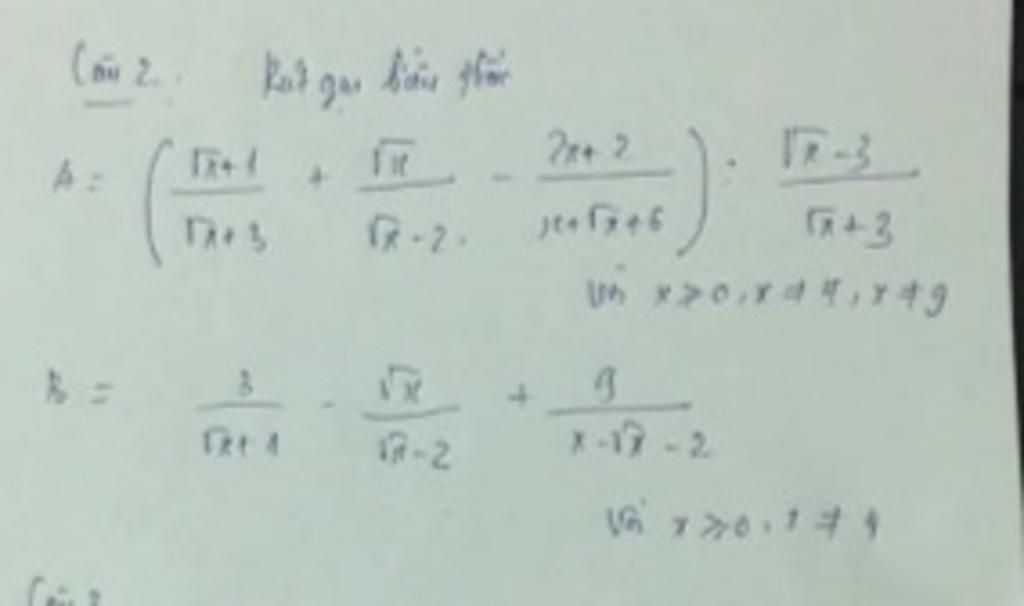 Câu 2. Rút gọn biểu thức
A = ( (√x+1)/(√x+3) + √x/(√x-2) - (2x+2)/(x+√x+6) ) : (√x-3)/(√x+3)
với x ≥ 0, x ≠ 4, x ≠ 9
B = 3/(√x+1) - √x/(√x-2) + 9/(x-√x-2)
với x ≥ 0, x ≠ 4
Câu